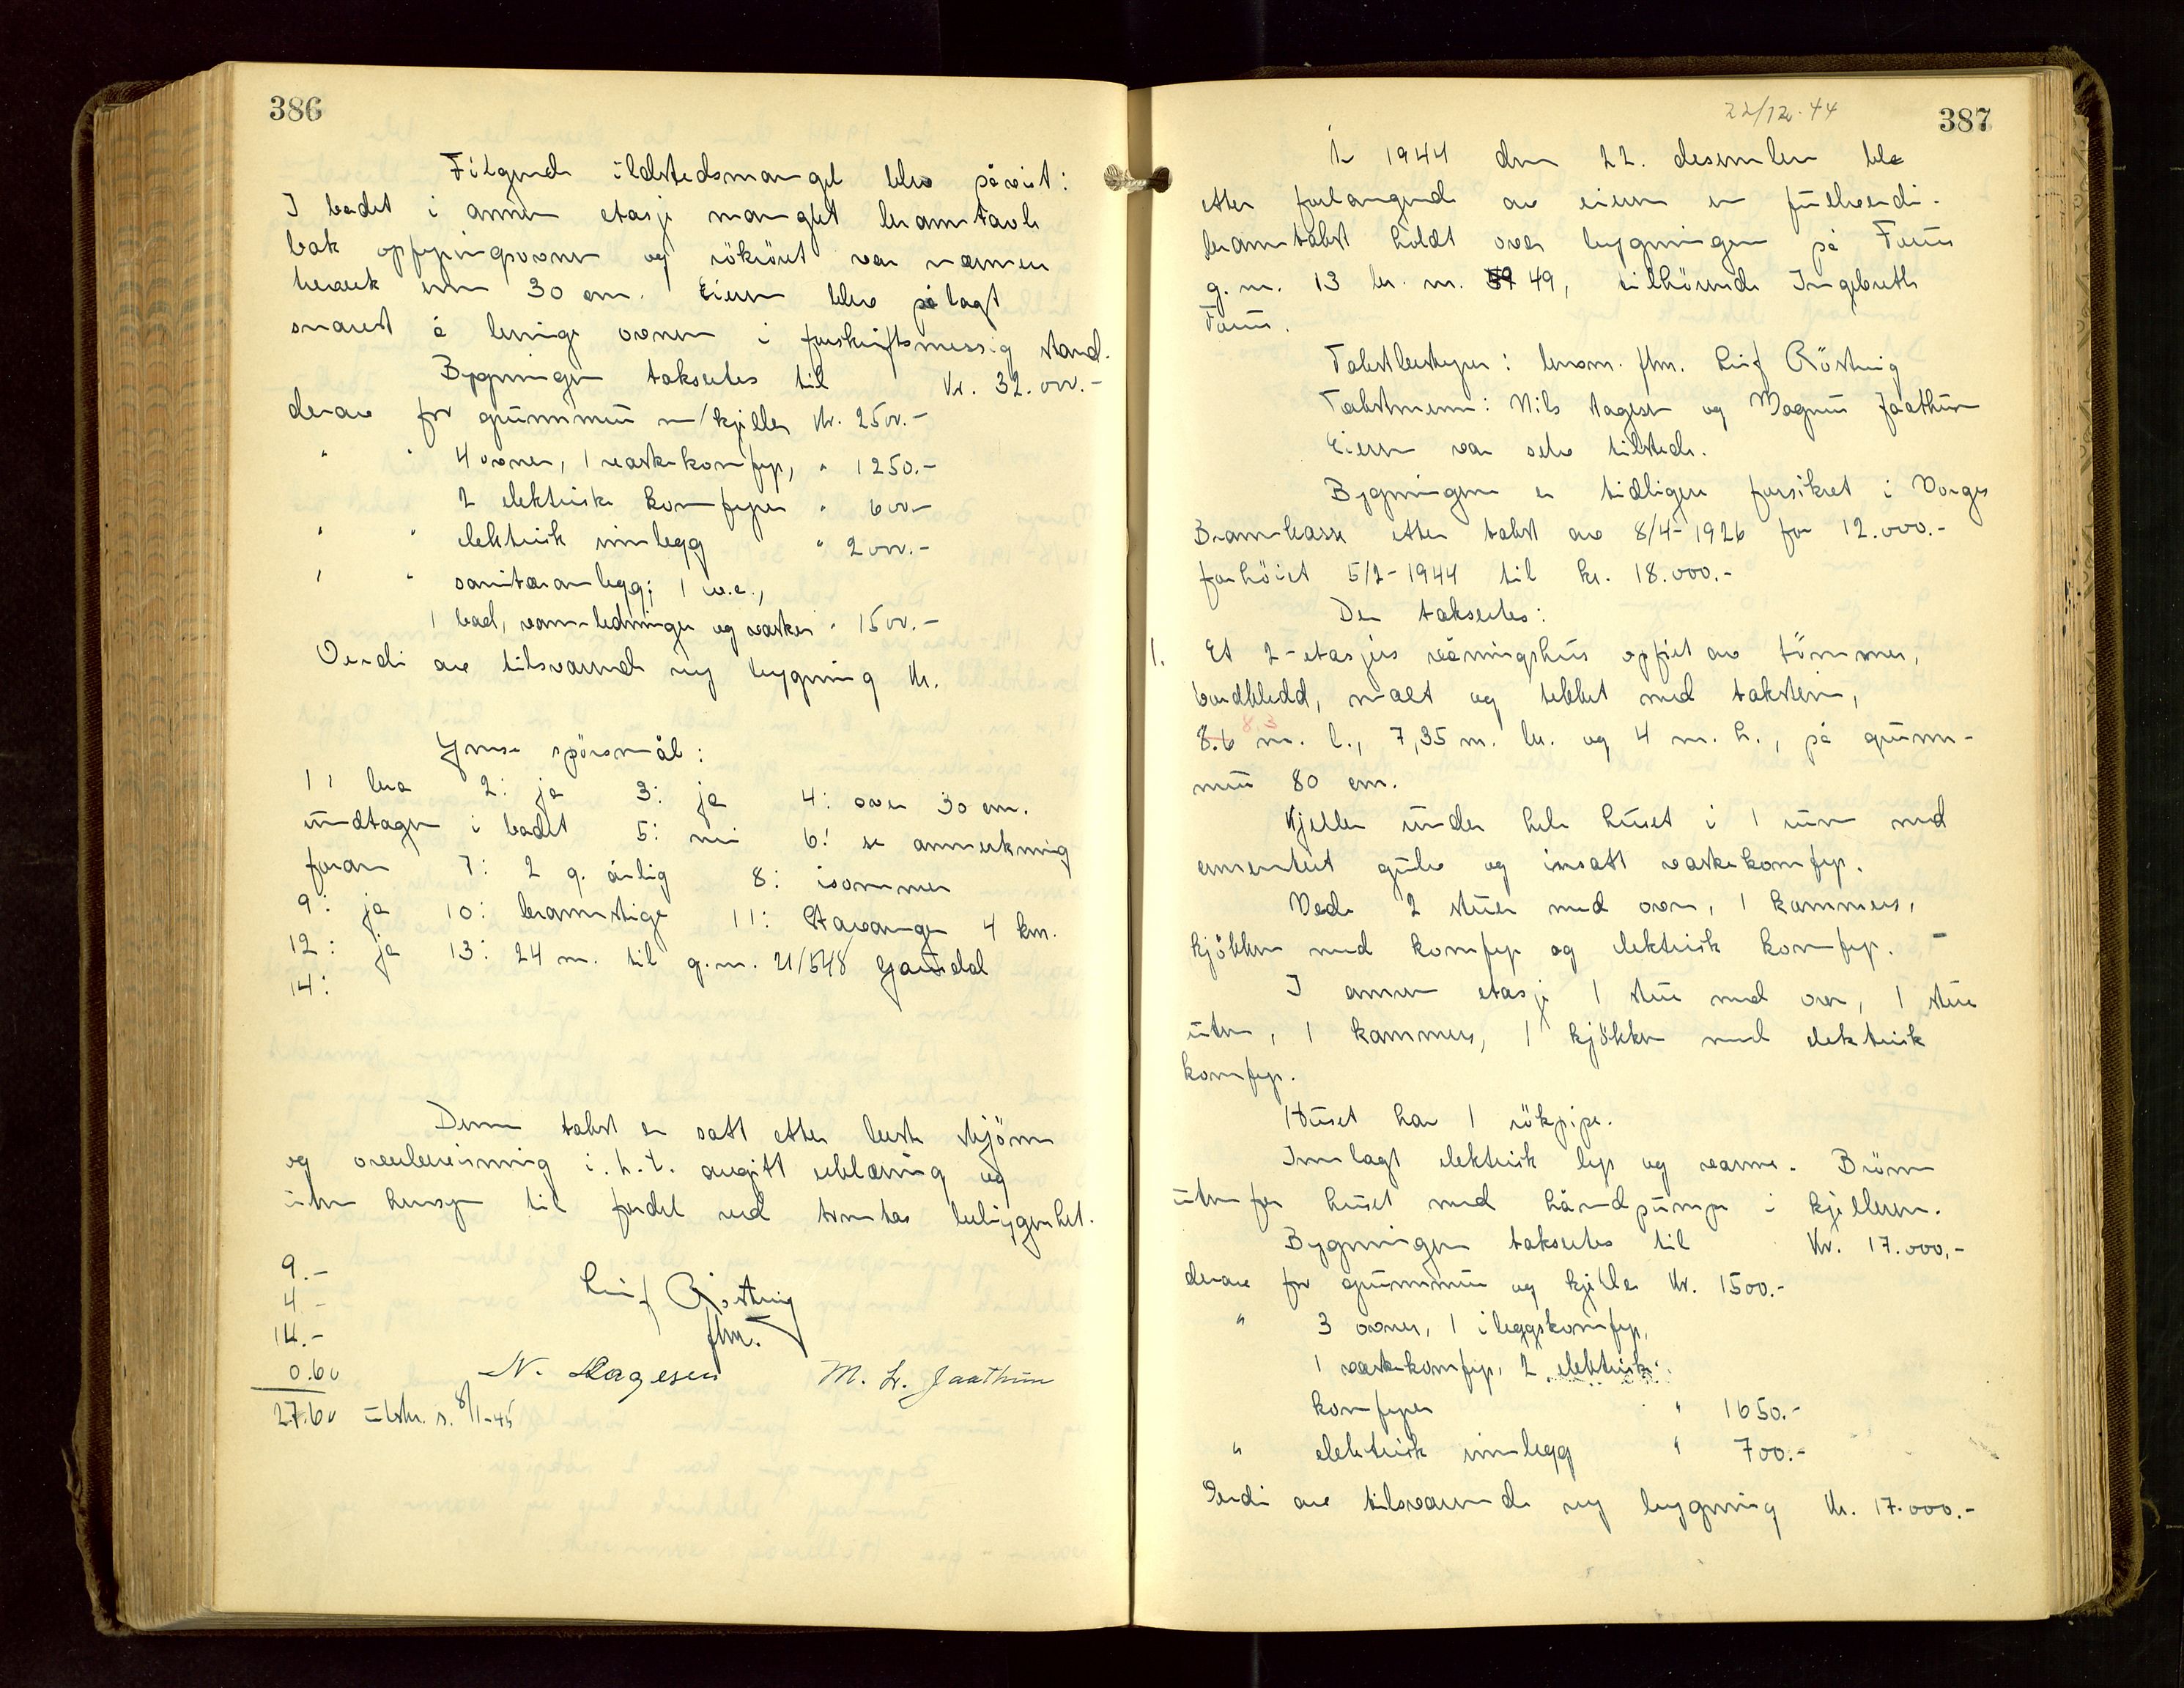 386
Følgende ildstedsmangel blev påvist:
I badet i annen etasje manglet branntavle
bak oppfyringsovnen og rökröret var nærmere
treverk enn 30 cm. Eieren blev pålagt
snarest å bringe ovnen i forskriftsmessig stand.
Bygningen takseres til Kr. 32.000.-
derav for grunnmur m/kjeller Kr. 2500.-
" " 4 ovner, 1 vaskekomfyr, " 1250.-
2 elektriske komfyrer " 600.-
" " elektrisk innlegg " 2000.-
" " sanitæranlegg; 1 w.c.,
1 bad, vannledninger og vasker " 1500.-
Verdi av tilsvarende ny bygning Kr.
Ymse spörsmål:
1: bra 2: ja 3: ja 4: over 30 cm.
undtagen i badet 5: nei 6: se anmerkning
foran 7: 2 g. årlig 8: isommer
9: ja 10: brannstige 11: Stavanger 4 km.
12: ja 13: 24 m. til g.nr. 21/548 Gausdal
14:
Denne takst er satt etter beste skjönn
og overbevisning i.h.t. avgitt erklæring og
uten hensyn til fordel ved tomtas beliggenhet.
9.-
4.-
14.-
0.60
27.60 utskr. s. 8/1-45
Leif Röstvig
flm.
N. Hagesen M. L. Jaathun
22/12-44
387
År 1944 den 22. desember ble
etter forlangende av eieren en fullverdi-
branntakst holdt over bygningen på Forus
g.nr. 13 br. nr. 49, tilhörende Ingebreth
Forus.
Takstbestyrer: lensm. flm. Leif Röstvig
Takstmenn: Nils Hagesen og Magnus Jaathun
Eieren var selv tilstede.
Bygningen er tidligere forsikret i Norges
Brannkasse etter takst av 8/4-1926 for 12.000.-
forhöiet 5/2-1944 til kr. 18.000.-
Den takseres:
1. Et 2-etasjers våningshus opfört av tömmer,
bordkledd, malt og tekket med takstein,
8.6 8.3 m. l., 7,35 m. br. og 4 m. h., på grunn-
mur 80 cm.
Kjeller under hele huset i 1 rum med
cementert gulv og innsatt vaskekomfyr.
Nede 2 stuer med ovn, 1 kammers,
kjökken med komfyr og elektrisk komfyr. -
I annen etasje 1 stue med ovn, 1 stue
uten, 1 kammers, 1 kjökken med elektrisk
komfyr.
Huset har 1 rökpipe.
Innlagt elektrisk lys og varme. Brönn
utenfor huset med håndpumpe i kjelleren.
Bygningen takseres til Kr. 17.000.-
derav for grunnmur og kjeller Kr. 1500.-
" 3 ovner, 1 ileggskomfyr,
1 vaskekomfyr, 2 elektriske
komfyrer " 1650.-
" elektrisk innlegg " 700.-
Verdi av tilsvarende ny bygning Kr. 17.000.-